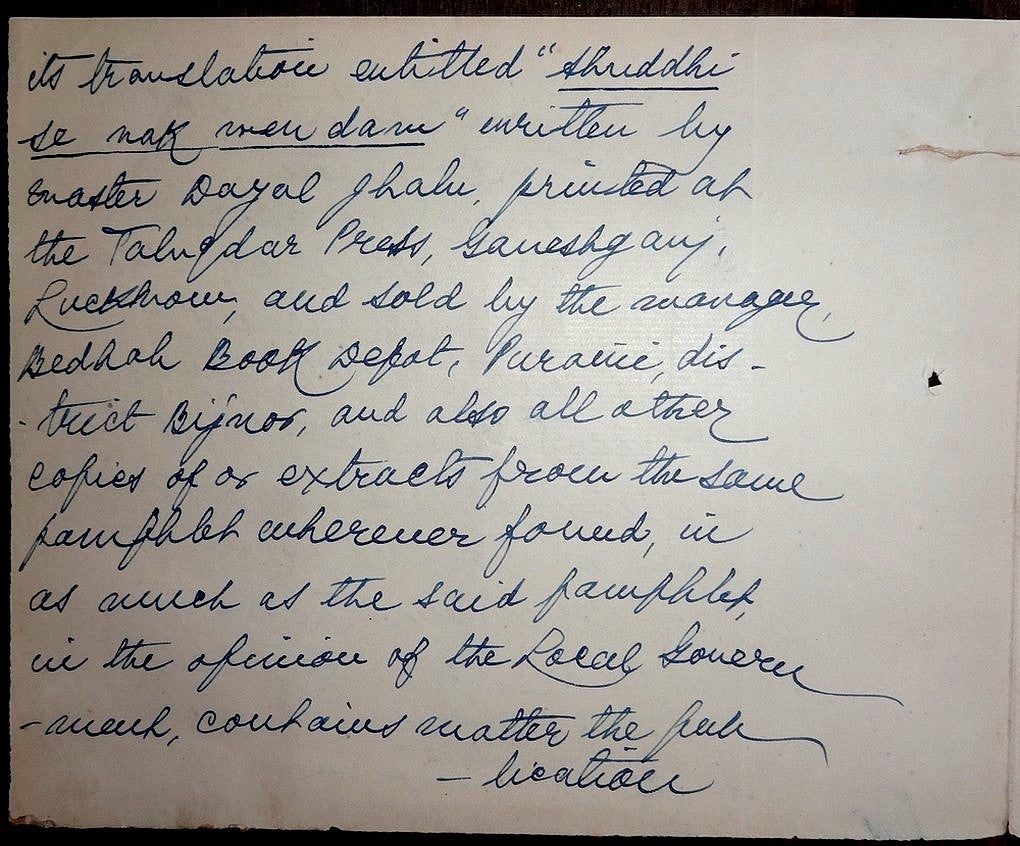 its translation entitled "Shuddhi
se nak men dam" written by
master Dayal Jhalu, printed at
the Taluqdar Press, Ganeshganj,
Lucknow, and sold by the manager,
Bedhab Book Depot, Puraini, dis-
-trict Bijnor, and also all other
copies of or extracts from the same
pamphlet wherever found, in
as much as the said pamphlet,
in the opinion of the Local Govern
-ment, contains matter the pub
-lication